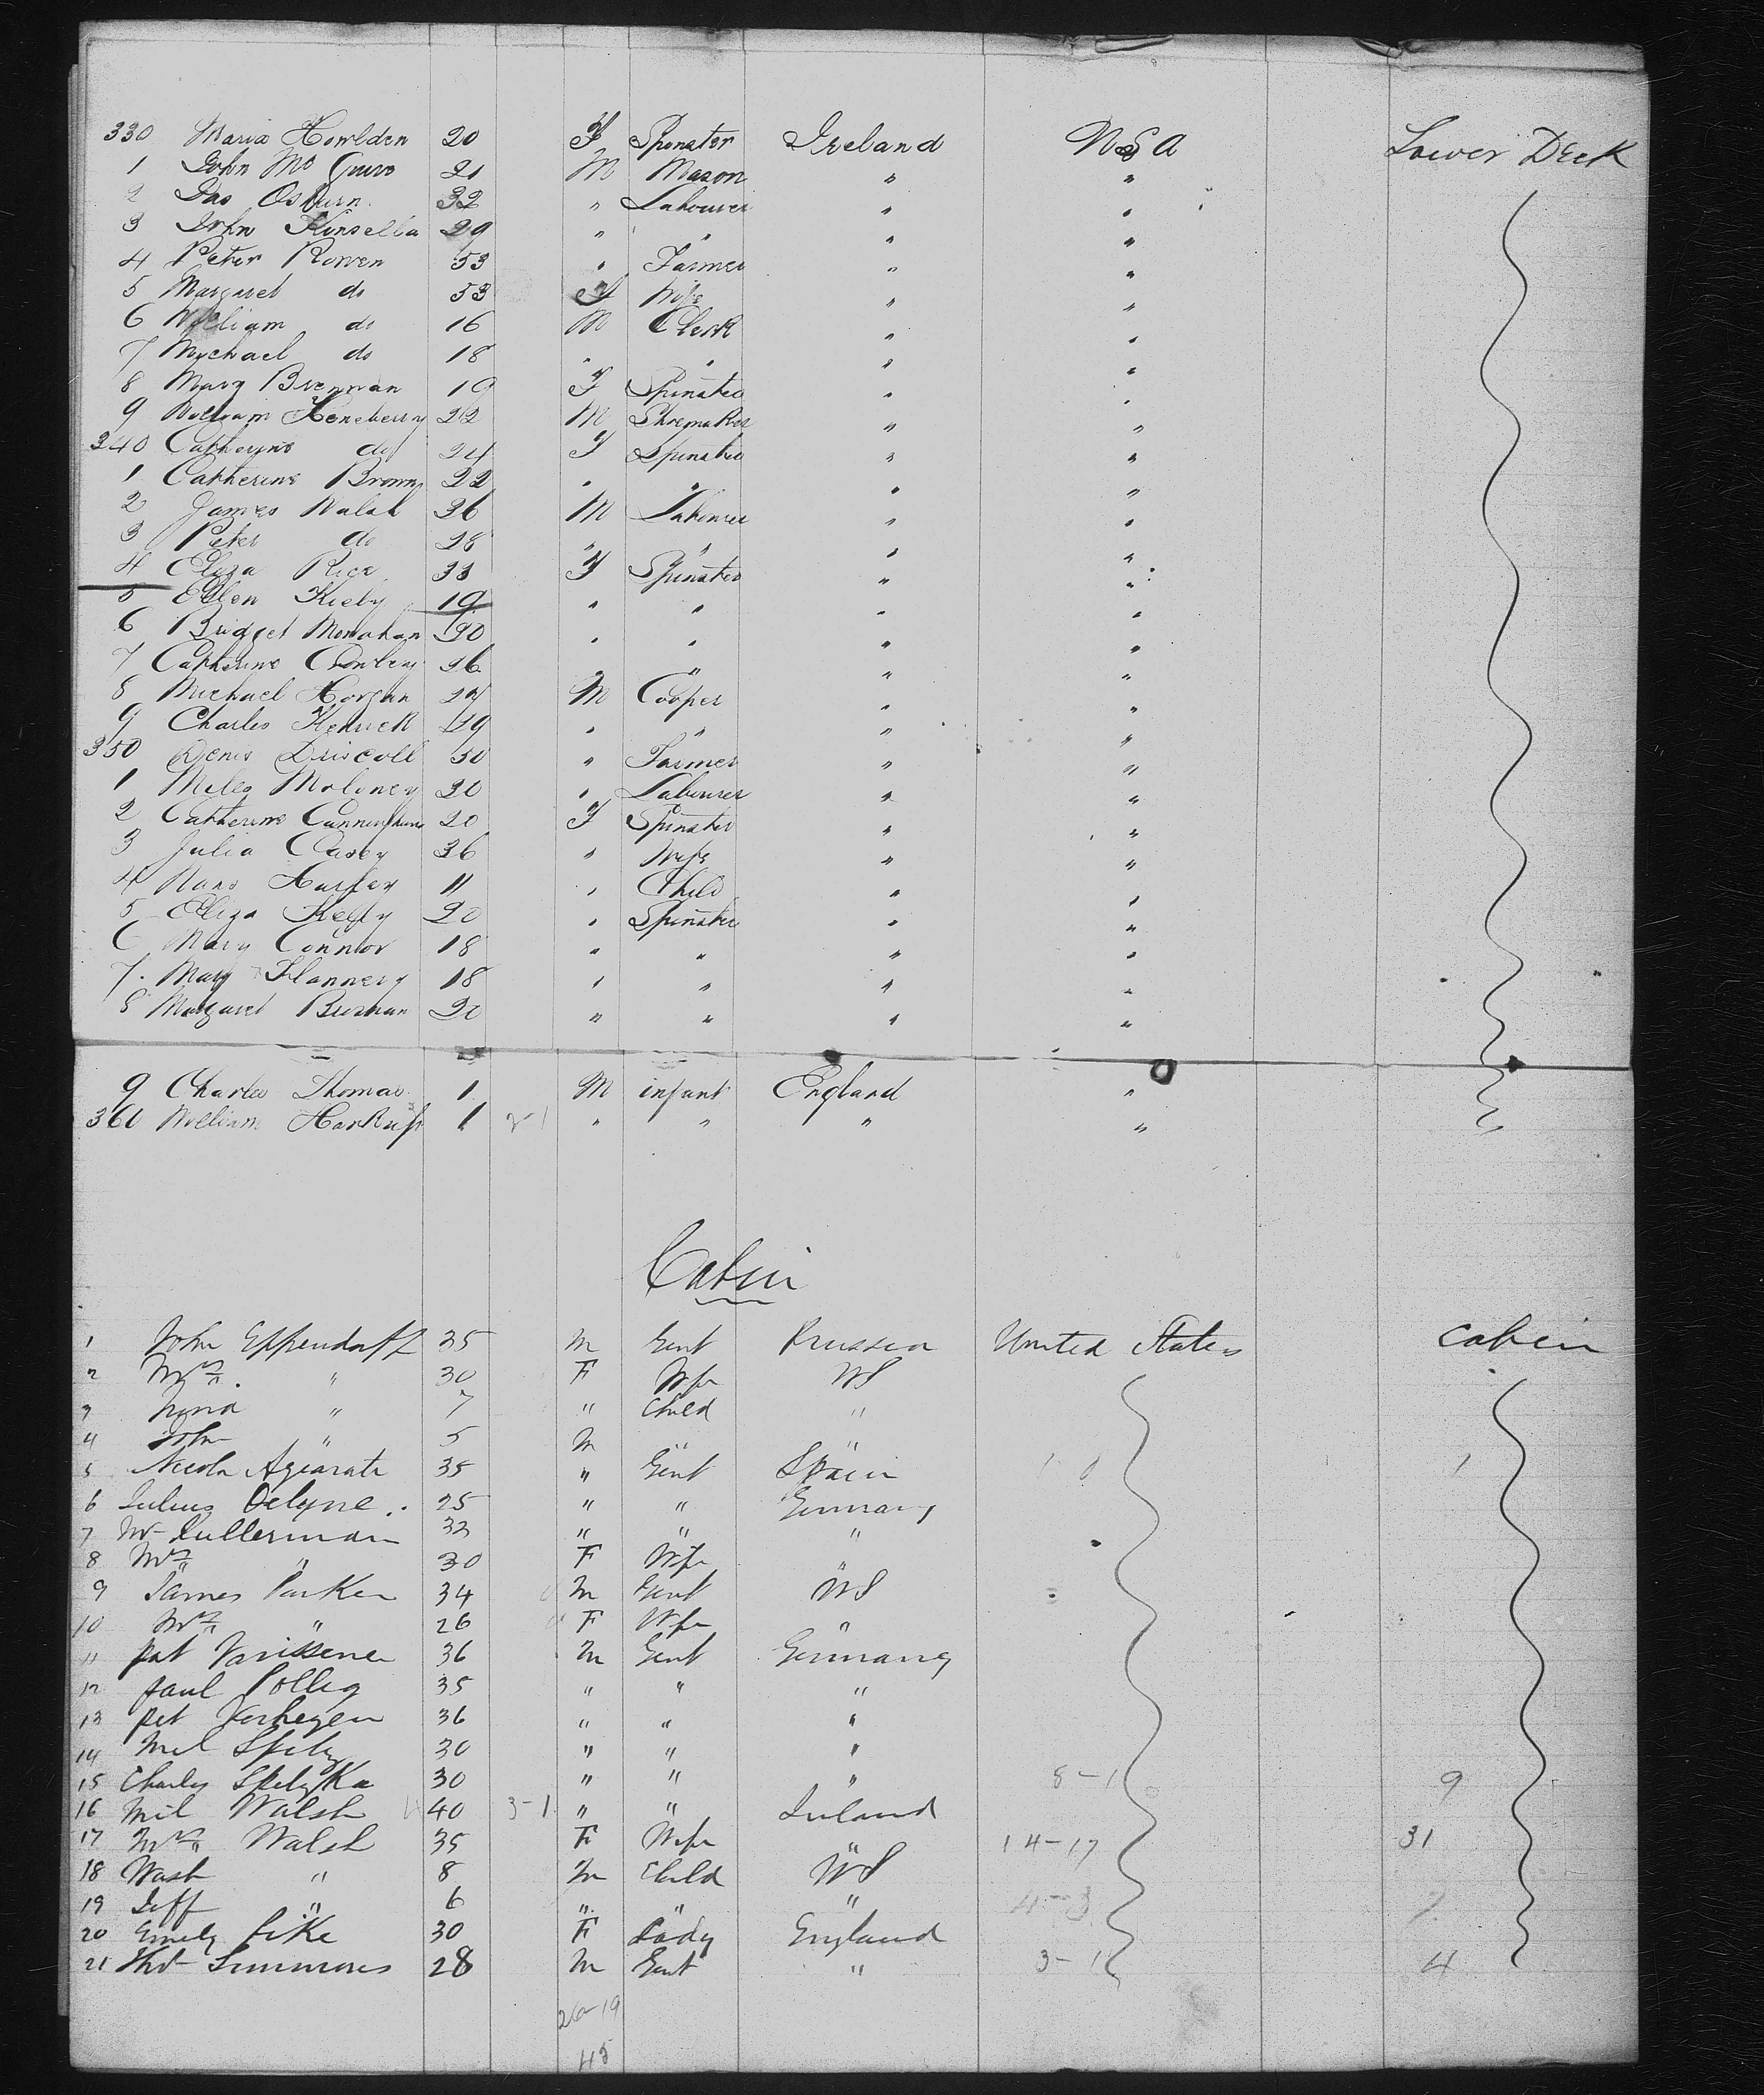 330 Maria Howlden 20 F Spinster Ireland U S A Lower Deck
1 John Mc Guire 21 M Mason " "
2 Jas Osburn 32 " Labourer " "
3 John Kinsella 29 " " " "
4 Peter Rowen 53 " Farmer " "
5 Margaret do 53 F Wife " "
6 William do 16 M Clerk " "
7 Mychael do 18 " " " "
8 Mary Brennan 19 F Spinster " "
9 William Heneberry 22 M Shoemaker " "
340 Catherine do 24 F Spinster " "
1 Catherine Brown 22 " " " "
2 James Walsh 36 M Labourer " "
3 Peter do 28 " " " "
4 Eliza Rice 33 F Spinster " "
5 Ellen Kiely 19 " " " "
6 Bridget Monahan 20 " " " "
7 Catherine Crowley 26 " " " "
8 Michael Horgan 24 M Cooper " "
9 Charles 29 " " " "
350 Denis Driscoll 50 " Farmer " "
1 Miles Moloney 30 " Labourer " "
2 Catherine Cunningham 20 F Spinster " "
3 Julia Casey 36 " Wife " "
4 Hurley 11 " Child " "
5 Eliza Kelly 20 " Spinster " "
6 Mary Connor 18 " " " "
7 Mary Flannery 18 " " " "
8 Margaret Brennan 20 " " " "
9 Charles Thomas 1 M infant England "
360 William 1 2-1 " " " "
Cabin
1 John Eppendorff 35 M Gent Prussia United States Cabin
2 Mrs " 30 F Wife US
3 " 7 " Child "
4 John " 5 M " "
5 35 " Gent Spain 1
6 Julius 25 " " Germany
7 Mr 32 " " "
8 Mrs " 30 F Wife "
9 James Parker 34 M Gent US
10 Mrs " 26 F Wife "
11 Pat 36 M Gent Germany
12 Paul Polleg 35 " " "
13 Pet Verhegen 36 " " "
14 30 " " "
15 Charles 30 " " " 8-1 9
16 Walsh 40 3-1 " " Ireland
17 Mrs Walsh 35 F Wife " 14-17 31
18 Wash " 8 M Child US
19 Jeff " 6 " " " 4-3 7
20 Emily Pike 30 F Lady England
21 Simmons 28 M Gent " 3-1 4
26-19
45